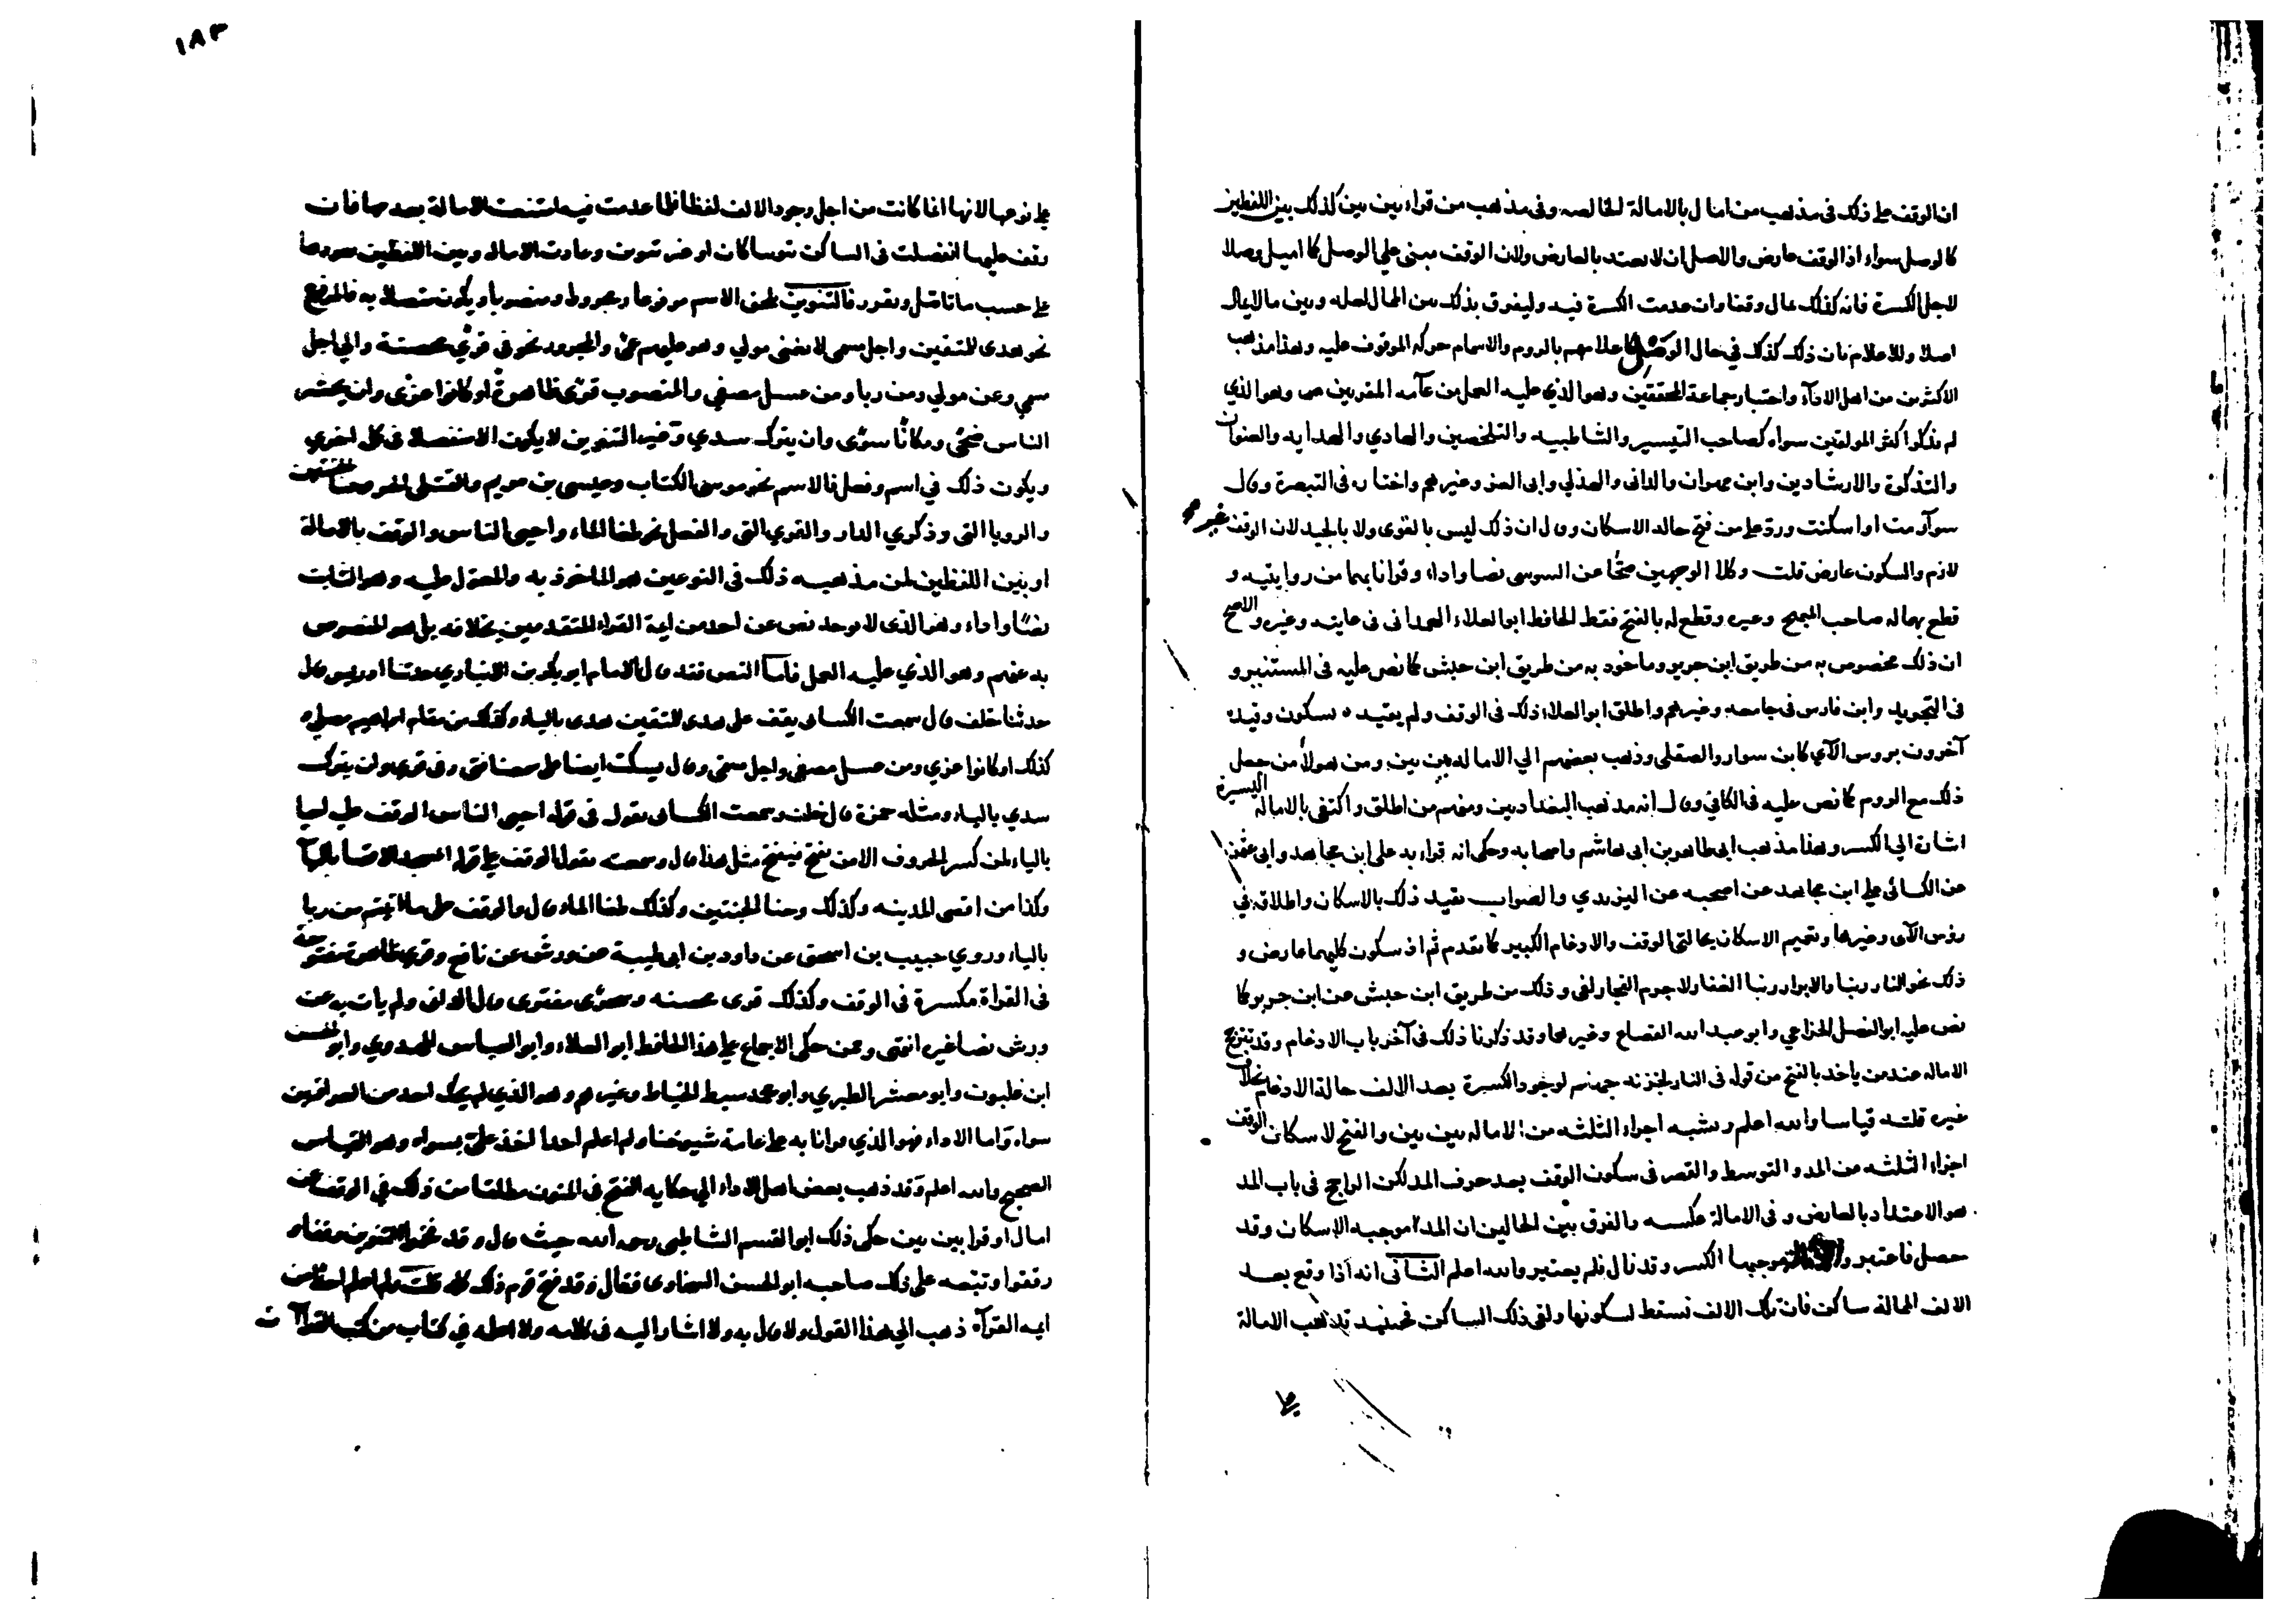 ان الوقف على ذلك فى مذهب من امال بالامالة الخالصه وفى مذهب من قراء بين بين كذلك بين اللفظين
كالوصل سواء اذ الوقف عارض والاصل ان لا يعتد بالعارض ولان الوقف مبنى علي الوصل كما اميل وصلا
لاجل الكسرة فانه كذلك يمال وقفا وان عدمت الكسرة فيه وليفرق بذلك بين الممال لعله وبين ما لا يمال
اصلا وللاعلام بان ذلك كذلك في حال الوصل كاعلامهم بالروم والاشمام حركه الموقوف عليه وهذا مذهب
الاكثرين من اهل الادآء واختيار جماعة المحققين وهو الذي عليه العمل من عآمه المقريين وهو الذي
لم يذكر اكثر المولفين سواه كصاحب التيسير والشاطبيه والتلخصين والهادي والهدايه والعنوان
والتذكرة والارشادين وابن مهران والدانى والهذلي وابى العز وغيرهم واختاره فى التبصرة وقال
سوآء رمت او اسكنت ورد على من فتح حاله الاسكان وقال ان ذلك ليس بالقوى ولا بالجيد لان الوقف غير
لازم والسكون عارض قلت وكلا الوجهين صحّا عن السوسى نصا واداء وقرانا بهما من روايتيه و
قطع بهما له صاحب المبهج وغيره وقطع له بالفتح فقط الحافظ ابو العلاء الهمدانى فى غايته وغيره والاصح
ان ذلك مخصوص به من طريق ابن جرير وماخوذ به من طريق ابن حبش كما نص عليه فى المستنير و
فى التجويد وابن فارس فى جامعه وغيرهم واطلق ابو العلاء ذلك فى الوقف ولم يقيده بسكون وقيده
آخرون بروس الآي كابن سوار والصقلى وذهب بعضهم الي الاماله بين بين ومن هولاء من جعل
ذلك مع الروم كما نص عليه فى الكافي وقال انه مذهب البغداديين ومنهم من اطلق واكتفى بالاماله اليسيرة
اشارة الي الكسر وهذا مذهب ابى طاهر بن ابى هاشم واصحابه وحكى انه قراء به على ابن مجاهد وابى عثمن
عن الكسائى على ابن مجاهد عن اصحبه عن اليزيدي والصواب تقيد ذلك بالاسكان واطلاقه في
رؤس الآى وغيرها وتعميم الاسكان بحالتى الوقف والادغام الكبير كما تقدم ثم اذ سكون كليهما عارض و
ذلك نحو النار ربنا والابرار ربنا الغفار لا جرم الفجار لفى وذلك من طريق ابن حبش عن ابن جرير كما
نص عليه ابو الفضل الخزاعي وابو عبد الله القصاع وغيرهما وقد ذكرنا ذلك فى آخر باب الادغام وقد تترجح
الاماله عند من ياخذ بالفتح من قوله فى النار لخزنه جهنم لوجود الكسرة بعد الالف حالة الادغام بخلاف
غيره قلته قياسا والله اعلم ويشبه اجراء الثلثه من الاماله بين بين والفتح لاسكان الوقف
اجزاء الثلثه من المد والتوسط والقصر فى سكون الوقف بعد حرف المد لكن الراجح فى باب المد
هو الاعتداد بالعارض وفى الامالة عكسه والفرق بين الحالين ان المد موجبه الاسكان وقد
حصل فاعتبر والامالة موجبها الكسر وقد زال فلم يعتبر والله اعلم الثانى انه اذا وقع بعد
الالف الممالة ساكن فان تلك الالف تسقط لسكونها ولقى ذلك الساكن فحينيد تذهب الامالة
على
١٨٣
على نوعيها لانها انما كانت من اجل وجود الالف لفظا فلما عدمت فيه امتنعت الامالة بعدمها فان
وقف عليها انفصلت فى الساكن تنوينا كان او غير تنوين وعادت الاماله وبين اللفظين بعودها
على حسب ما تاصل وتقرر فالتنوين يلحق الاسم مرفوعا ومجرورا ومنصوبا ويكون متصلا به فالمرفوع
نحو هدى للمتقين واجل مسمى لا يغنى مولي وهو عليهم عمًى والمجرور نحو فى قرًي محصنة والي اجل
مسمي وعن مولي ومن ربا ومن عسل مصفي والمنصوب قرًى ظاهرة او كانوا غزًى وان يحشر
الناس ضحًى ومكانًا سوًى وان يترك سدي وغير التنوين لا يكون الا منفصلا فى كلمة اخري
ويكون ذلك في اسم وفعل فالاسم نحو موسى الكتاب وعيسى بن مريم والقتلى الحر وجنا الجنتين
والرويا التى وذكري الدار والقري التى والفعل نحو طغا الماء واحيى الناس والوقف بالامالة
او بين اللفظين لمن مذهبه ذلك فى النوعين هو الماخوذ به والمعول عليه وهو الثابت
نصًا واداء وهو الذى لا يوجد نص عن احد من ايمة القراء المتقدمين بخلافه بل هو المنصوص
به عنهم وهو الذي عليه العمل فاما النص فقد قال الامام ابو بكر بن الانباري حدثنا ادريس قال
حدثنا خلف قال سمعت الكسائى يقف على هدى للمتقين هدى بالياء وكذلك من مقام ابراهيم مصلى و
كذلك او كانوا غزي ومن عسل مصفى واجل مسمى وقال يسكت ايضا على سمعنا فتى وفى قرى وان يترك
سدي بالياء ومثله حمزة قال خلف وسمعت الكسائى يقول فى قوله احيى الناس الوقف علي احيا
بالياء لمن كسر الحروف الا من يفتح فيفتح مثل هذا قال وسمعته يقول الوقف على قوله المسجد الاقصا بالياء
وكذا من اقصى المدينه وكذلك وجنا الجنتين وكذلك طغا الماء قال والوقف على وما اتيتم من ربا
بالياء وروي حبيب بن اسحق عن داود بن ابى طيبة عن ورش عن نافع وقرى ظاهرة مفتوحة
فى القراة مكسرة فى الوقف وكذلك قرى محصنه وسحرًى مفترى قال الدانى ولم يات به عن
ورش نصا غيره انتهى وممن حكى الاجماع على هذا الحافظ ابو العلاء وابو العباس المهدوي وابو الحسن
ابن غلبون وابو معشر الطبري وابو محمد سبط الخياط وغيرهم وهو الذي لم يحك احد من العراقيين
سواه واما الاداء فهو الذي قرانا به على عامة شيوخنا ولم اعلم احدا اخذ على بسواه وهو القياس
الصحيح والله اعلم وقد ذهب بعض اهل الاداء الي حكايه الفتح فى المنون مطلقا من ذلك في الوقف عن
امال او قرا بين بين حكى ذلك ابو القسم الشاطبى رحمه الله حيث قال وقد فخموا التنوين وقفا و
رققوا وتبعه على ذلك صاحبه ابو الحسن السخاوى فقال وقد فتح قوم ذلك كله قلت ولم اعلم احدا من
ايمه القرآة ذهب الي هذا القول ولا قال به ولا اشار اليه فى كلامه ولا اعلمه في كتاب من كتب القراآت